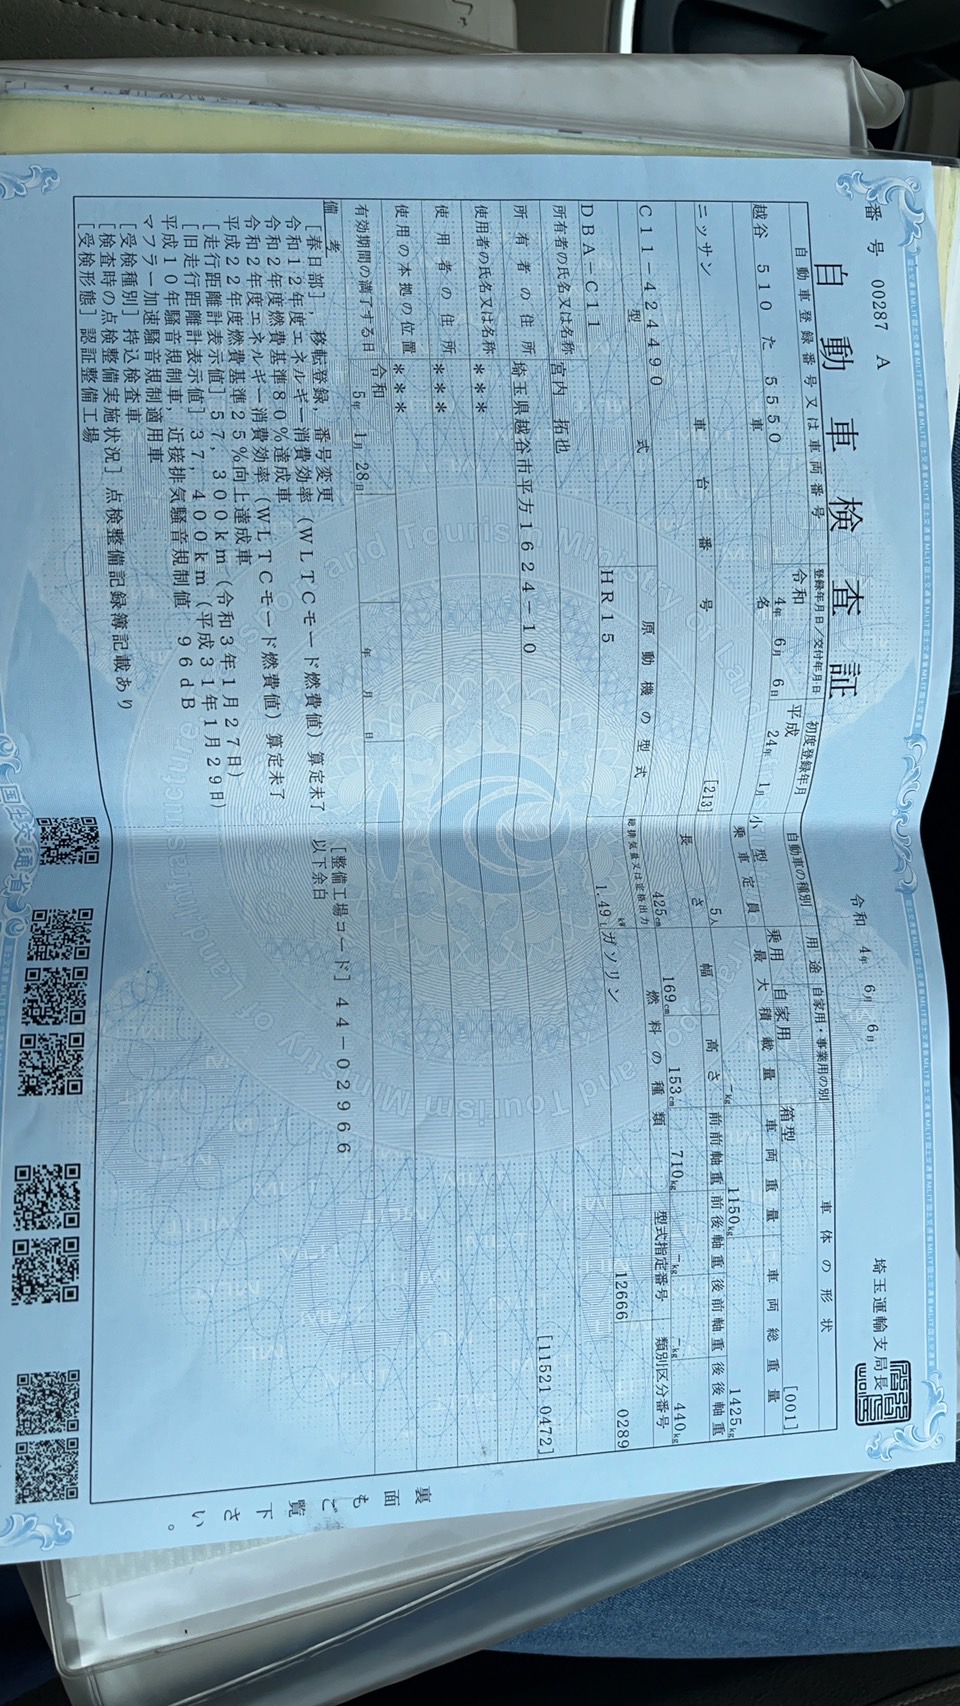 番号 00287 A
令和 4年 6月 6日
埼玉運輸支局長
自動車検査証
自動車登録番号又は車両番号
登録年月日/交付年月日
初度登録年月
自動車の種別
用途
自家用・事業用の別
車体の形状
越谷 510 た 5550
令和 4年 6月 6日
平成 24年 1月
小型
乗用
自家用
箱型
[001]
車名
乗車定員
最大積載量
車両重量
車両総重量
ニッサン
[213]
5人
-kg
1150kg
1425kg
車台番号
長さ
幅
高さ
前前軸重
前後軸重
後前軸重
後後軸重
C11-424490
425cm
169cm
153cm
710kg
-kg
-kg
440kg
型式
原動機の型式
総排気量又は定格出力
燃料の種類
型式指定番号
類別区分番号
DBA-C11
HR15
1.49
kW
L
ガソリン
12666
0289
所有者の氏名又は名称
宮内 拓也
所有者の住所
埼玉県越谷市平方1624-10
[11521 0472]
使用者の氏名又は名称
***
使用者の住所
***
使用の本拠の位置
***
有効期間の満了する日
令和 5年 1月 28日
年 月 日
備考
[春日部], 移転登録, 番号変更
令和12年度エネルギー消費効率(WLTCモード燃費値)算定未了
令和2年度燃費基準80%達成車
令和2年度エネルギー消費効率(WLTCモード燃費値)算定未了
平成22年度燃費基準25%向上達成車
[走行距離計表示値] 57,300km(令和3年1月27日)
[旧走行距離計表示値] 37,400km(平成31年1月29日)
平成10年騒音規制車, 近接排気騒音規制値 96dB
マフラー加速騒音規制適用車
[受検種別] 持込検査車
[検査時の点検整備実施状況] 点検整備記録簿記載あり
[受検形態] 認証整備工場
[整備工場コード] 44-02966
以下余白
裏面もご覧下さい。
国土交通省